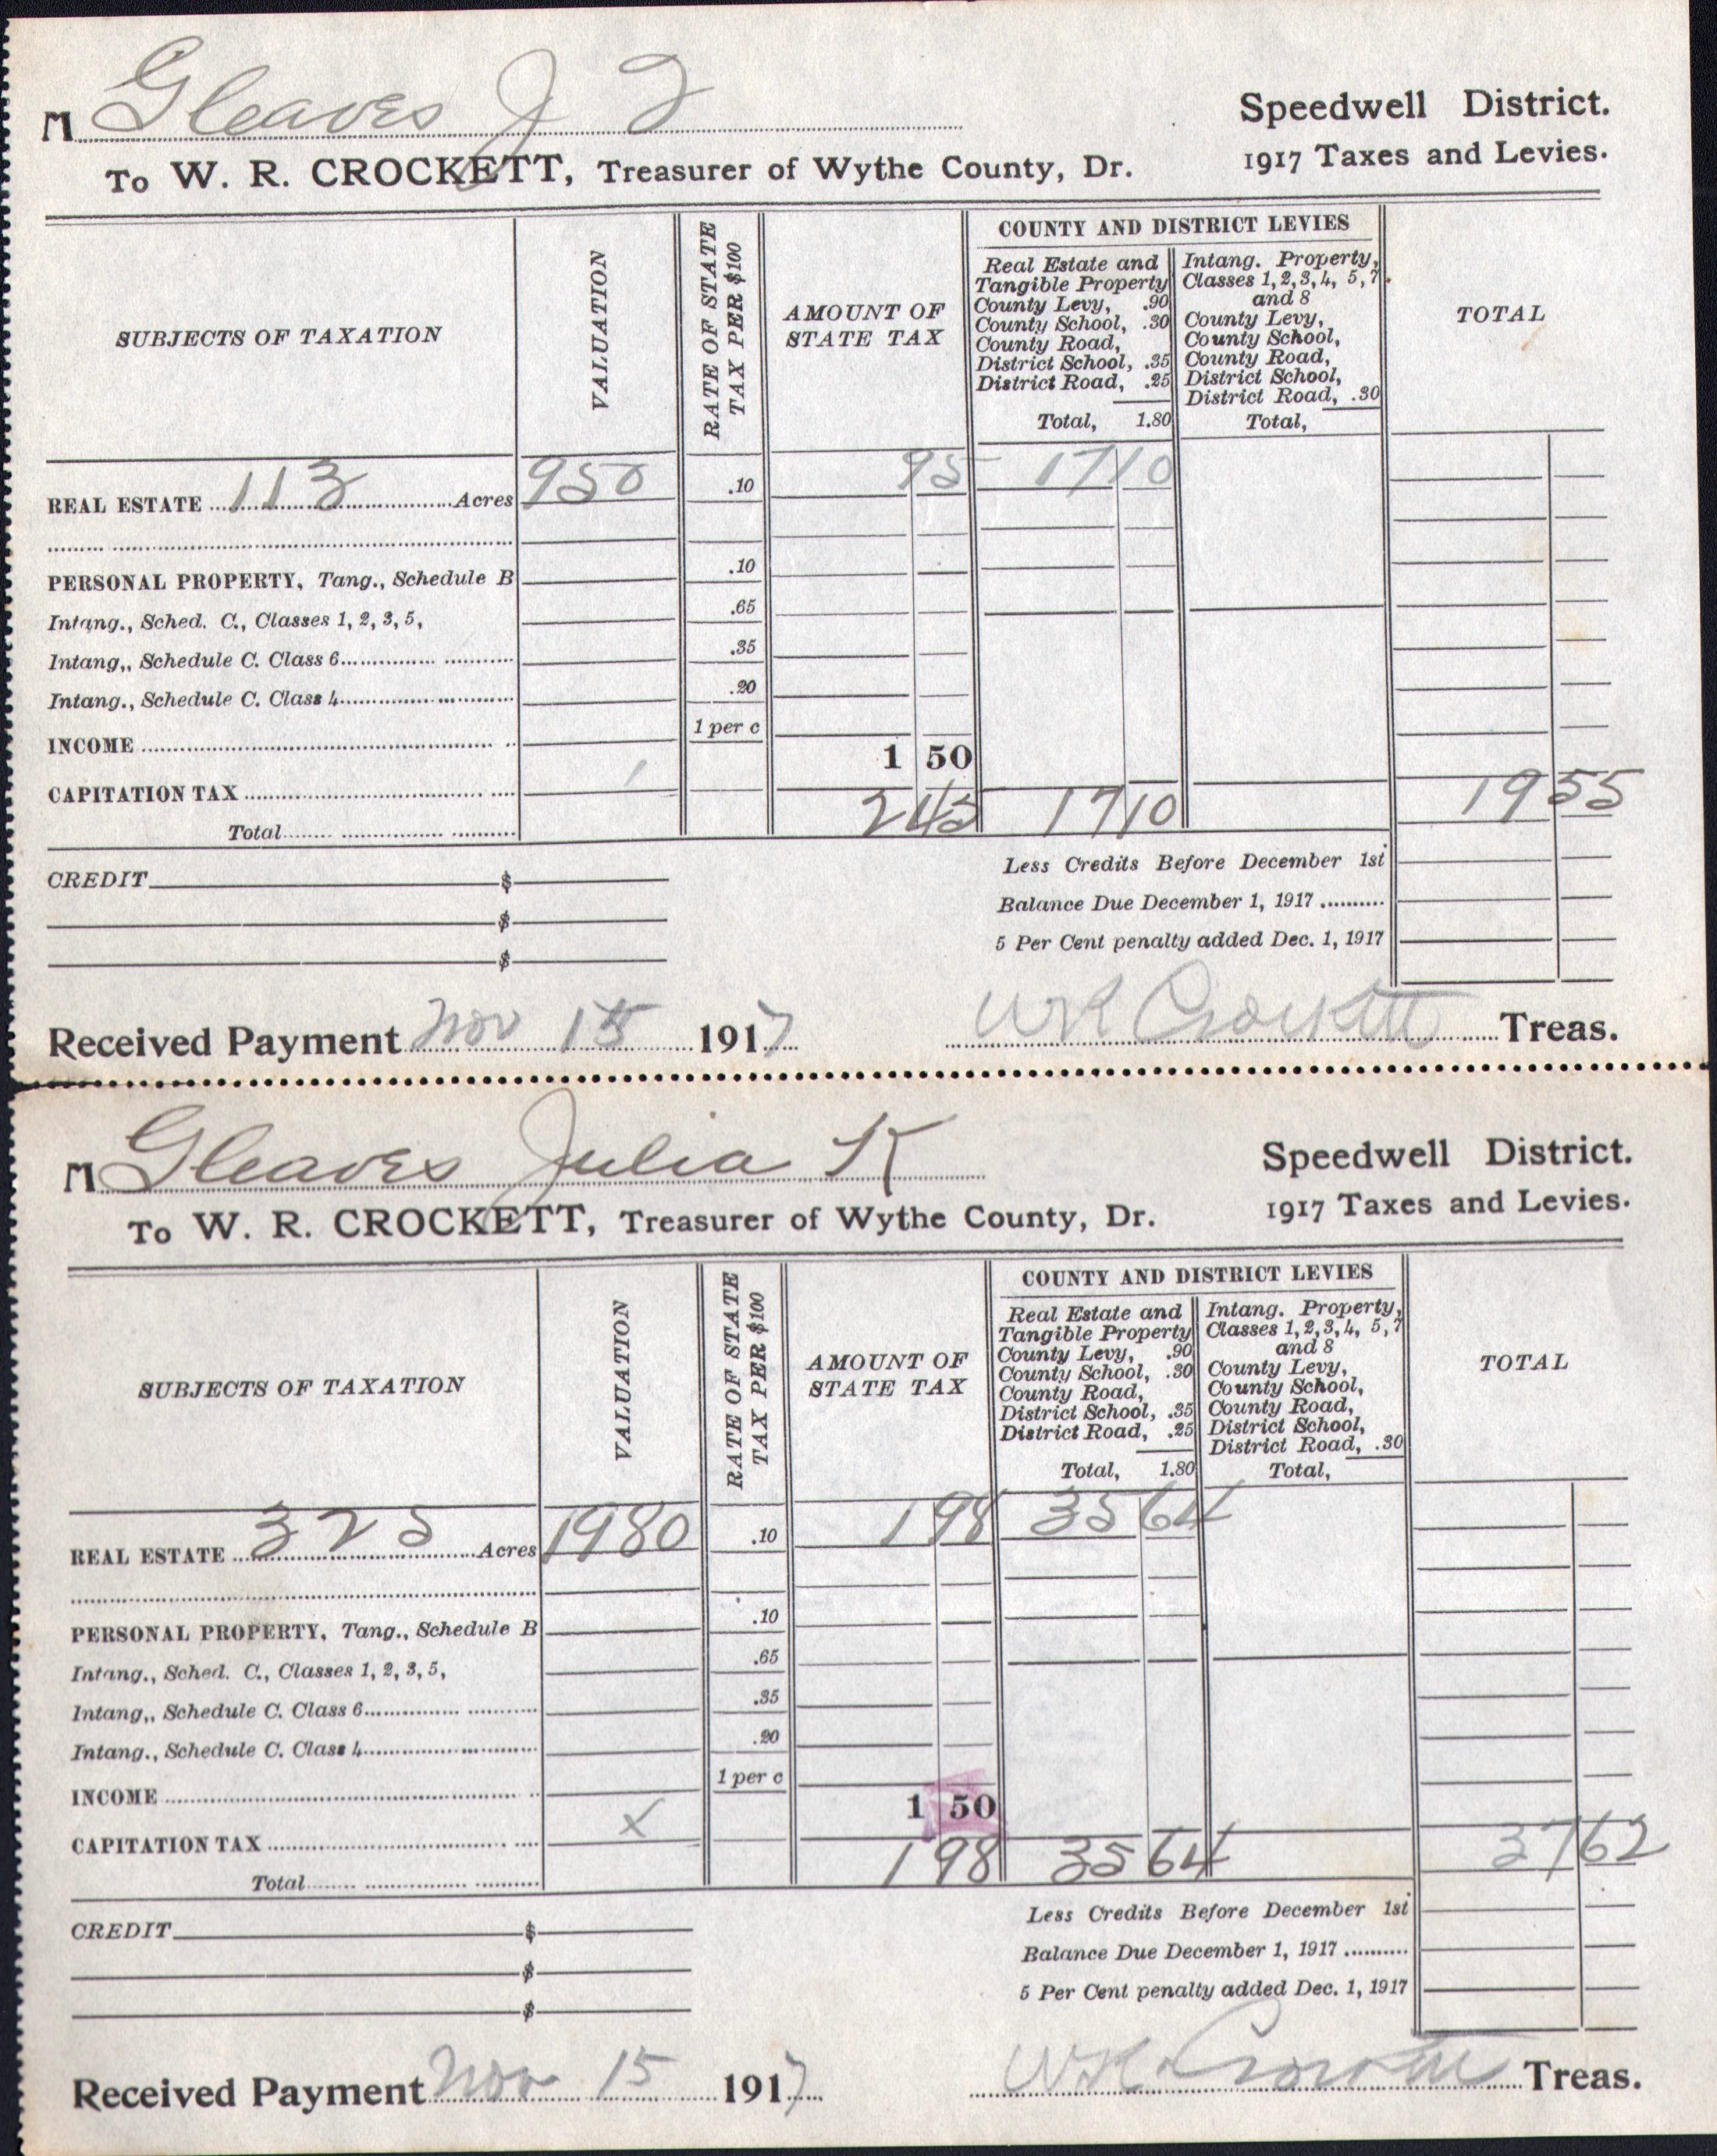 M Gleaves J T
Speedwell District.
To W. R. CROCKETT, Treasurer of Wythe County, Dr.
1917 Taxes and Levies.
SUBJECTS OF TAXATION
VALUATION
RATE OF STATE TAX PER $100
AMOUNT OF STATE TAX
COUNTY AND DISTRICT LEVIES
Real Estate and
Tangible Property
County Levy, .90
County School, .30
County Road,
District School, .35
District Road, .25
Total, 1.80
Intang. Property,
Classes 1, 2, 3, 4, 5, 7,
and 8
County Levy,
County School,
County Road,
District School,
District Road, .30
Total,
TOTAL
REAL ESTATE 113 Acres 950 .10 95 17 10
PERSONAL PROPERTY, Tang., Schedule B .10
Intang., Sched. C., Classes 1, 2, 3, 5, .65
Intang,, Schedule C. Class 6 .35
Intang., Schedule C. Class 4 .20
INCOME 1 per c
CAPITATION TAX / 1 50
Total 2 45 17 10 19 55
CREDIT $
$
$
Less Credits Before December 1st
Balance Due December 1, 1917
5 Per Cent penalty added Dec. 1, 1917
Received Payment Nov 15 1917 W R Crockett Treas.
M Gleaves Julia K
Speedwell District.
To W. R. CROCKETT, Treasurer of Wythe County, Dr.
1917 Taxes and Levies.
SUBJECTS OF TAXATION
VALUATION
RATE OF STATE TAX PER $100
AMOUNT OF STATE TAX
COUNTY AND DISTRICT LEVIES
Real Estate and
Tangible Property
County Levy, .90
County School, .30
County Road,
District School, .35
District Road, .25
Total, 1.80
Intang. Property,
Classes 1, 2, 3, 4, 5, 7
and 8
County Levy,
County School,
County Road,
District School,
District Road, .30
Total,
TOTAL
REAL ESTATE 325 Acres 1980 .10 1 98 35 64
PERSONAL PROPERTY, Tang., Schedule B .10
Intang., Sched. C., Classes 1, 2, 3, 5, .65
Intang,, Schedule C. Class 6 .35
Intang., Schedule C. Class 4 .20
INCOME 1 per c
CAPITATION TAX X 1 50
Total 1 98 35 64 37 62
CREDIT $
$
$
Less Credits Before December 1st
Balance Due December 1, 1917
5 Per Cent penalty added Dec. 1, 1917
Received Payment Nov 15 1917 W R Crockett Treas.